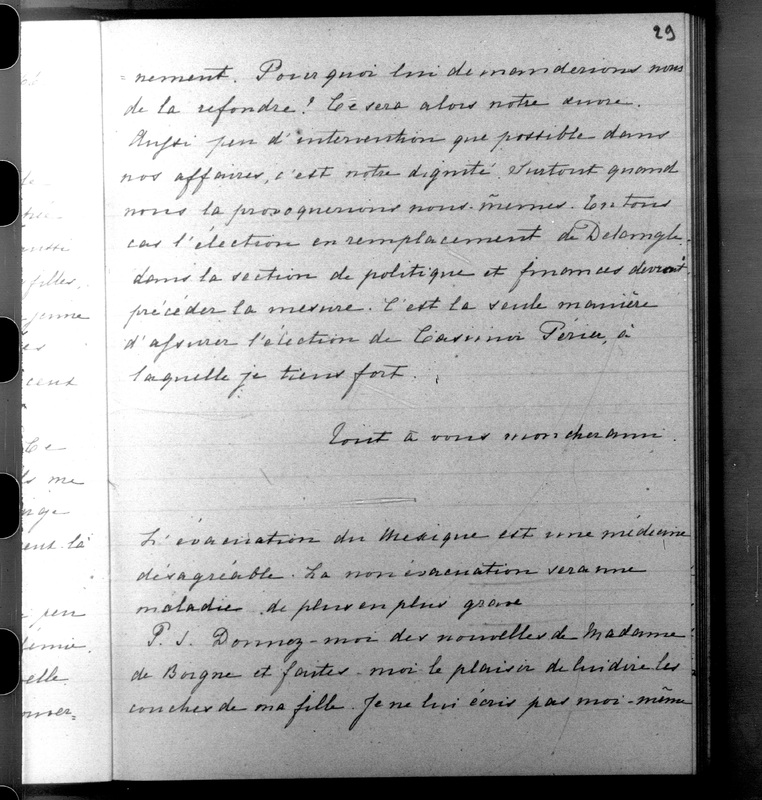 29
=nement. Pourquoi lui demanderions nous
de la refondre! Ce sera alors notre œuvre.
Aussi peu d'intervention que possible dans
nos affaires, c'est notre dignité. Surtout quand
nous la provoquerions nous-mêmes. En tous
cas l'élection en remplacement de Delangle
dans la section de politique et finances devront
précéder la mesure. C'est la seule manière
d'assurer l'élection de Casimir Périer, à
laquelle je tiens fort.
Tout à vous mon cher ami.
L'évacuation du Mexique est une médecine
désagréable. La non évacuation sera une
maladie de plus en plus grave
P. S. Donnez-moi des nouvelles de Madame
de Boigne et faites-moi le plaisir de lui dire les
couches de ma fille. Je ne lui écris pas moi-même
filles,
jeune
Ce
me
là
peu
elle